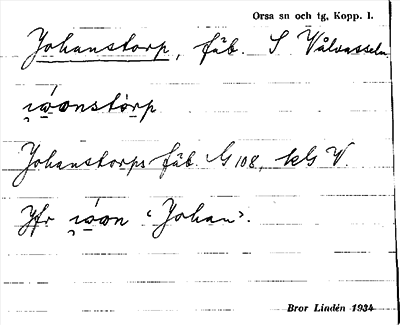 Orsa sn och tg, Kopp. l.
Johanstorp, fäb. S Vålvasseln
Johanstorps fäb G 108, kG V.
Jfr "Johan".
Bror Lindén 1934